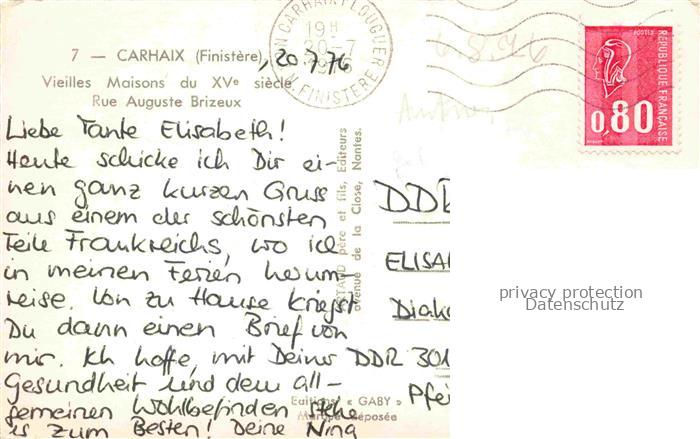 7 — CARHAIX (Finistère)
, 20.7.76
Vieilles Maisons du XVe siècle
Rue Auguste Brizeux
CARHAIX-PLOUGUER
19H
20-7
1976
N. FINISTERE
6.8.76
POSTES
REPUBLIQUE FRANÇAISE
0,80
Liebe Tante Elisabeth!
Heute schicke ich Dir ei-
nen ganz kurzen Gruss
aus einem der schönsten
Teile Frankreichs, wo ich
in meinen Ferien herum-
reise. Von zu Hause kriegst
Du dann einen Brief von
mir. Ich hoffe, mit Deiner
Gesundheit und dem all-
gemeinen Wohlbefinden stehe
es zum Besten! Deine Nina
père et fils, Editeurs
avenue de la Close, Nantes.
Editions « GABY »
Marque déposée
DDR
ELISA
Diako
DDR 301
Pfei
privacy protection
Datenschutz